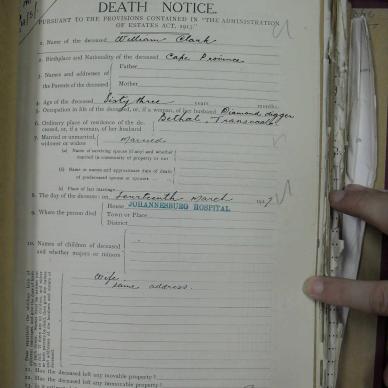 DEATH NOTICE.
PURSUANT TO THE PROVISIONS CONTAINED IN "THE ADMINISTRATION
OF ESTATES ACT, 1913"
1. Name of the deceased William Clark
2. Birthplace and Nationality of the deceased Cape Province
3. Names and addresses of the Parents of the deceased
Father
Mother
4. Age of the deceased Sixty three years months.
5. Occupation in life of the deceased, or, if a woman, of her husband Diamond digger
6. Ordinary place of residence of the deceased, or, if a woman, of her husband Bethal, Transvaal
7. Married or unmarried, widower or widow married
(a) Name of surviving spouse (if any) and whether married in community of property or not
(b) Name or names and approximate date of death of predeceased spouse or spouses
(c) Place of last marriage
8. The day of the decease: on Fourteenth March 19
9. Where the person died
House JOHANNESBURG HOSPITAL
Town or Place
District
10. Names of children of deceased and whether majors or minors
Wife
same address.
11. Has the deceased left any movable property?
12. Has the deceased left any immovable property?